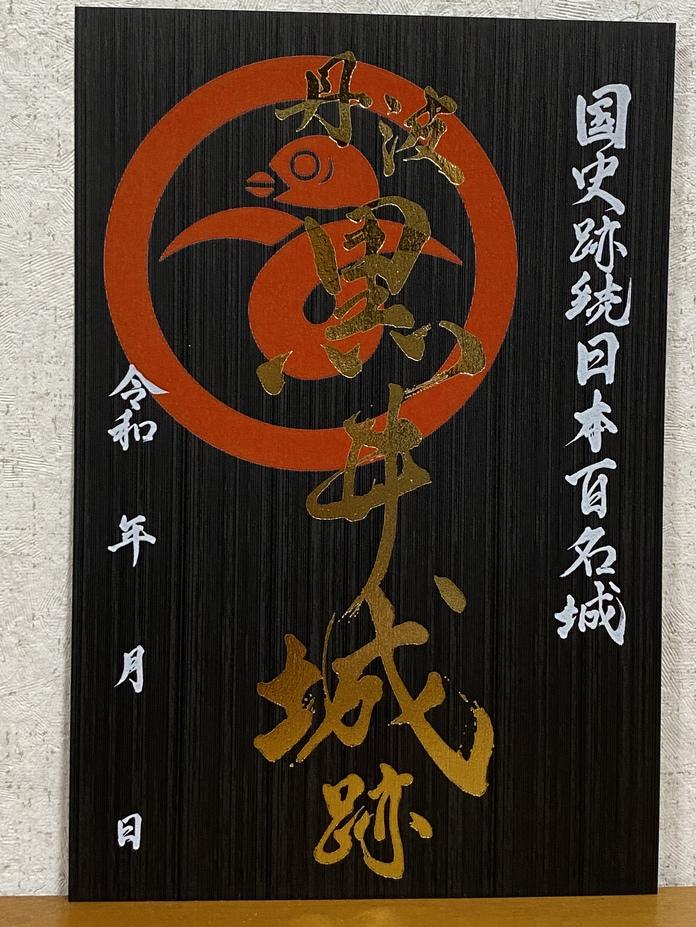 国史跡続日本百名城
丹波
黒井城
跡
令和 年 月 日